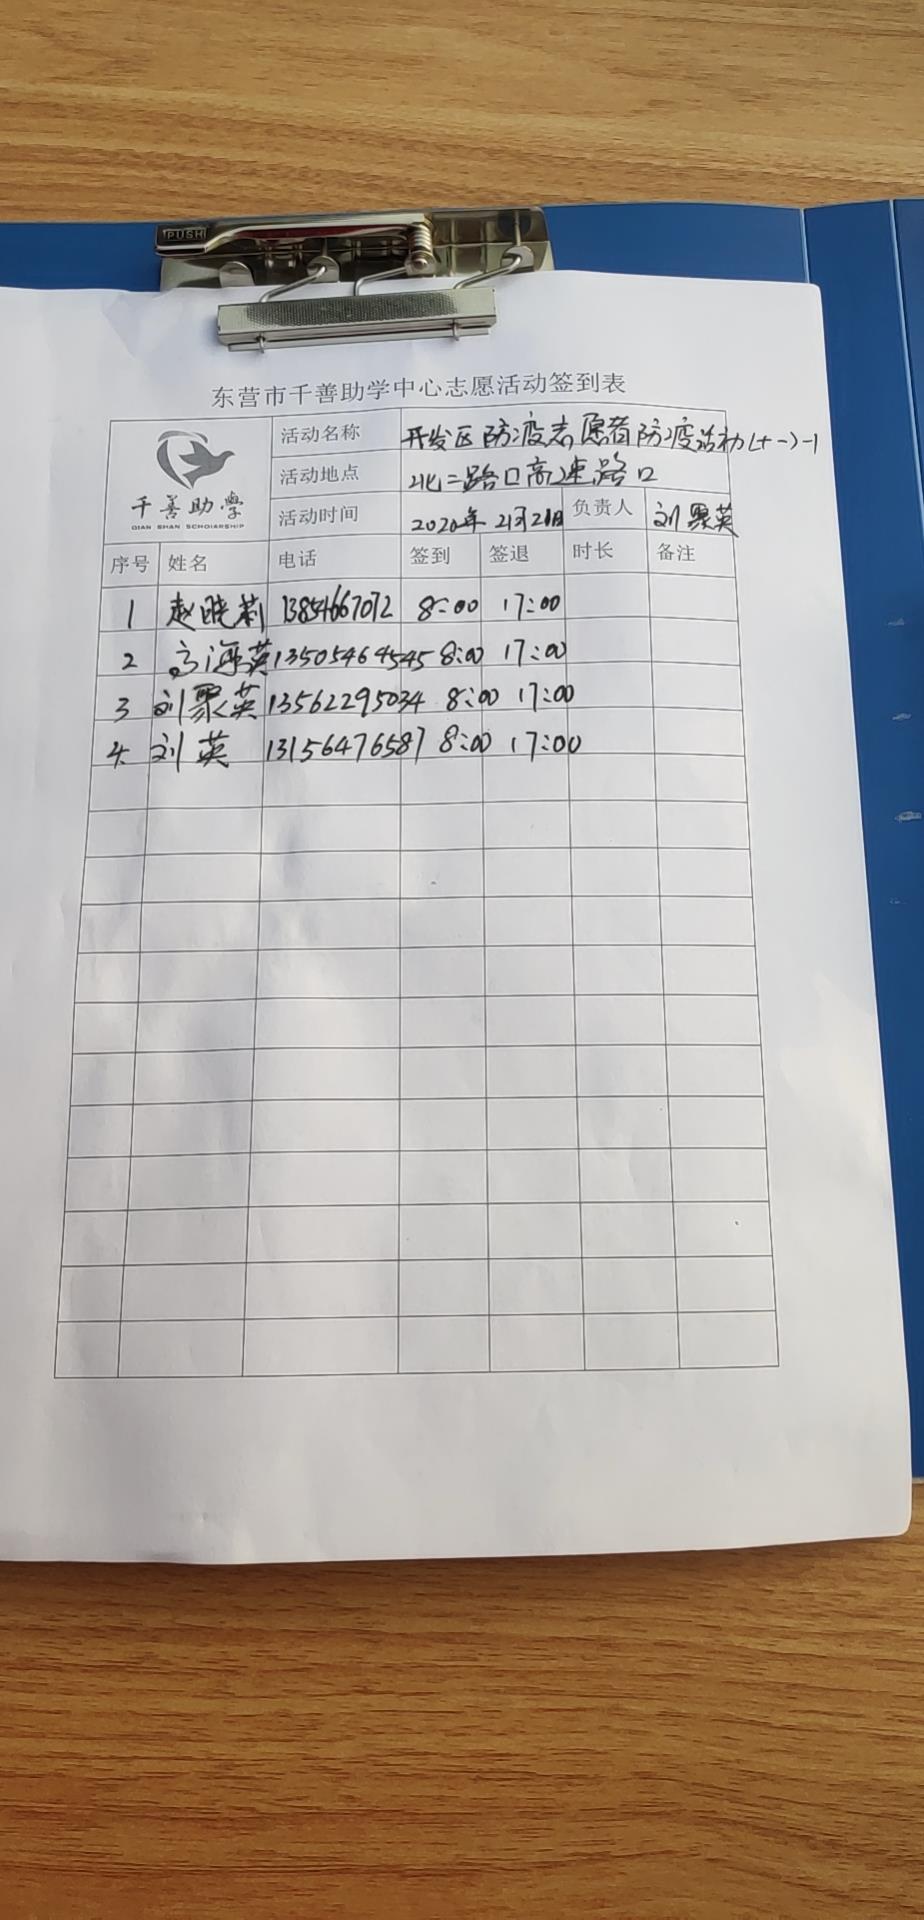 PUSH
东营市千善助学中心志愿活动签到表
千善助学
QIAN SHAN SCHOLARSHIP
活动名称 开发区防疫志愿者防疫活动(十一)-1
活动地点 北二路口高速路口
活动时间 2020年2月21日 负责人 刘聚英
序号 姓名 电话 签到 签退 时长 备注
1 赵晓莉 13854667072 8:00 17:00
2 高海英 13505464545 8:00 17:00
3 刘聚英 13562295034 8:00 17:00
4 刘英 13156476587 8:00 17:00